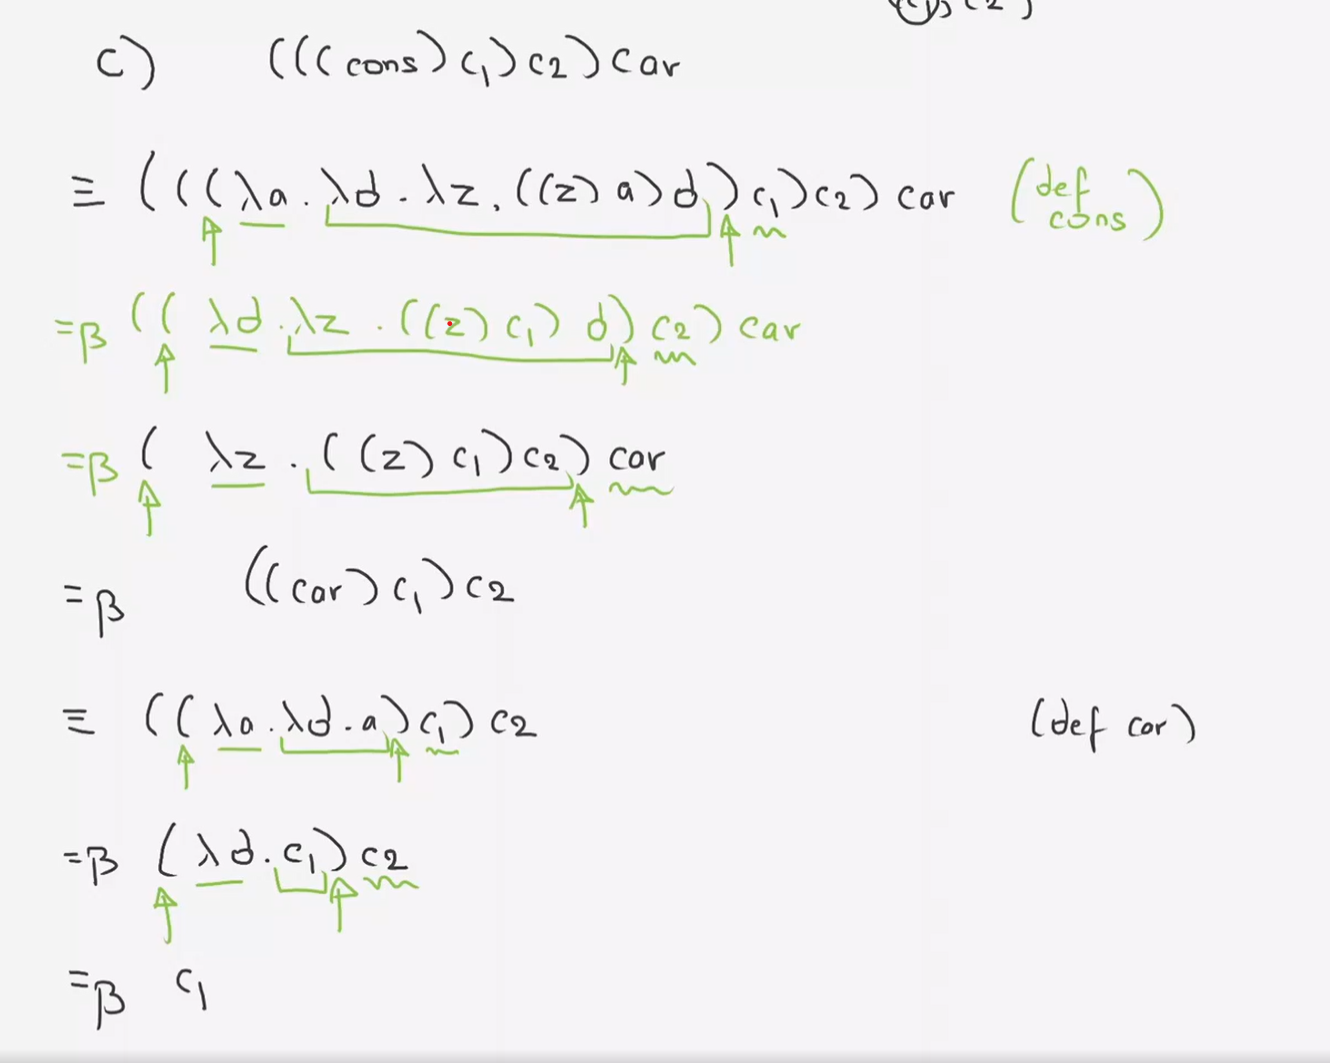 c) (((cons) c₁) c2) car
≡ (((λa . λd . λz . ((z) a) d) c₁) c2) car (def cons)
=β ((λd . λz . ((z) c₁) d) c2) car
=β (λz . ((z) c₁) c2) car
=β ((car) c₁) c2
≡ ((λa . λd . a) c₁) c2 (def car)
=β (λd . c₁) c2
=β c₁